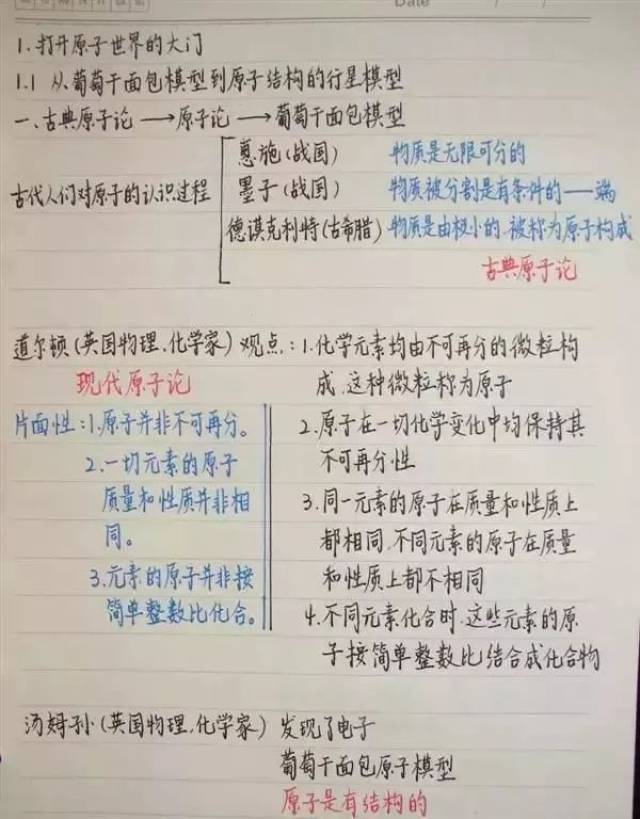 Date / /
1.打开原子世界的大门
1.1 从葡萄干面包模型到原子结构的行星模型
一、古典原子论→原子论→葡萄干面包模型
惠施(战国) 物质是无限可分的
古代人们对原子的认识过程 墨子(战国) 物质被分割是有条件的——端
德谟克利特(古希腊) 物质是由极小的.被称为原子构成
古典原子论
道尔顿(英国物理.化学家)观点:1.化学元素均由不可再分的微粒构
现代原子论 成.这种微粒称为原子
片面性:1.原子并非不可再分。 2.原子在一切化学变化中均保持其
2.一切元素的原子 不可再分性
质量和性质并非相 3.同一元素的原子在质量和性质上
同。 都相同.不同元素的原子在质量
3.元素的原子并非按 和性质上都不相同
简单整数比化合。 4.不同元素化合时.这些元素的原
子按简单整数比结合成化合物
汤姆孙(英国物理.化学家) 发现了电子
葡萄干面包原子模型
原子是有结构的